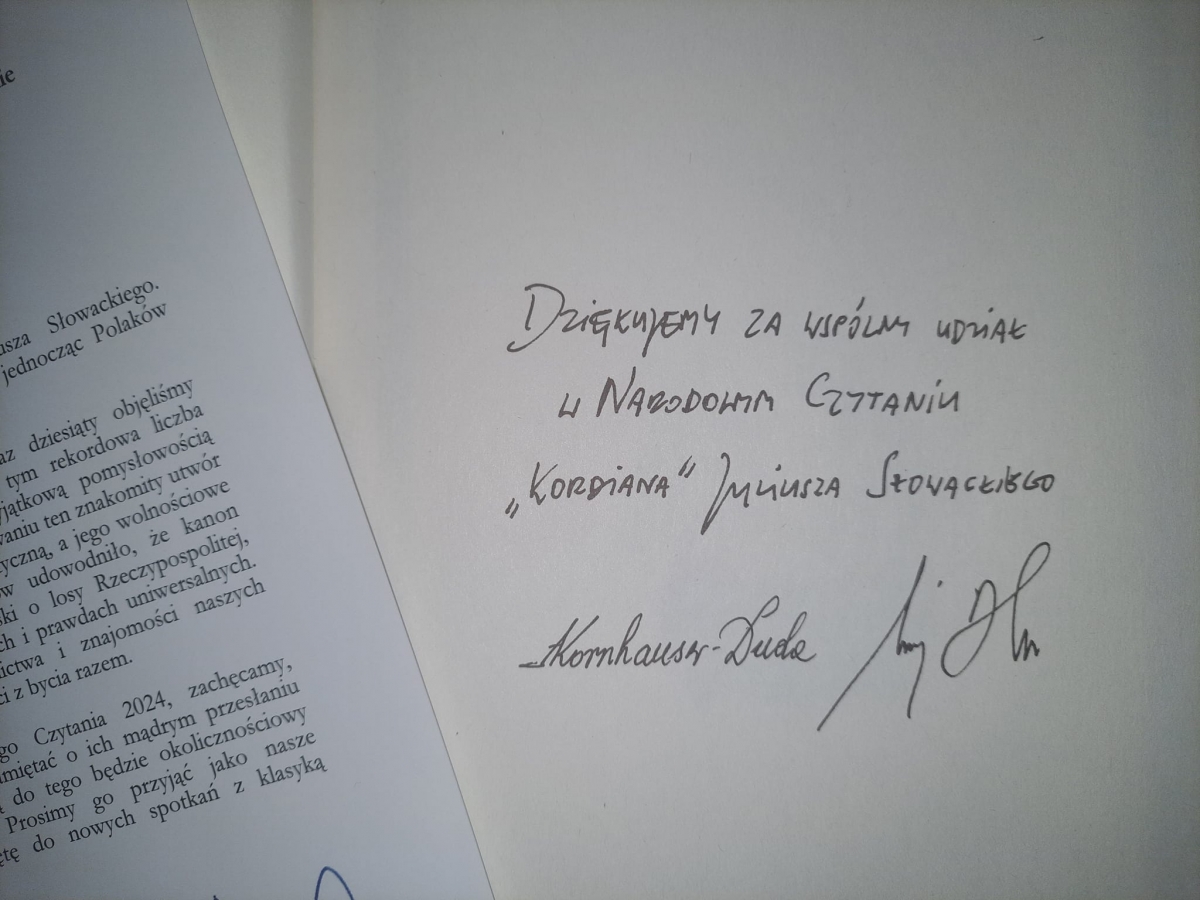 ie
usza Słowackiego.
jednocząc Polaków
az dziesiąty objęliśmy
tym rekordowa liczba
yjątkową pomysłowością
waniu ten znakomity utwór
yczną, a jego wolnościowe
ów udowodniło, że kanon
ski o losy Rzeczypospolitej,
ch i prawdach uniwersalnych.
ictwa i znajomości naszych
ci z bycia razem.
go Czytania 2024, zachęcamy,
amiętać o ich mądrym przesłaniu
do tego będzie okolicznościowy
Prosimy go przyjąć jako nasze
ętę do nowych spotkań z klasyką
Dziękujemy za wspólny udział
w Narodowym Czytaniu
„Kordiana” Juliusza Słowackiego
Kornhauser-Duda